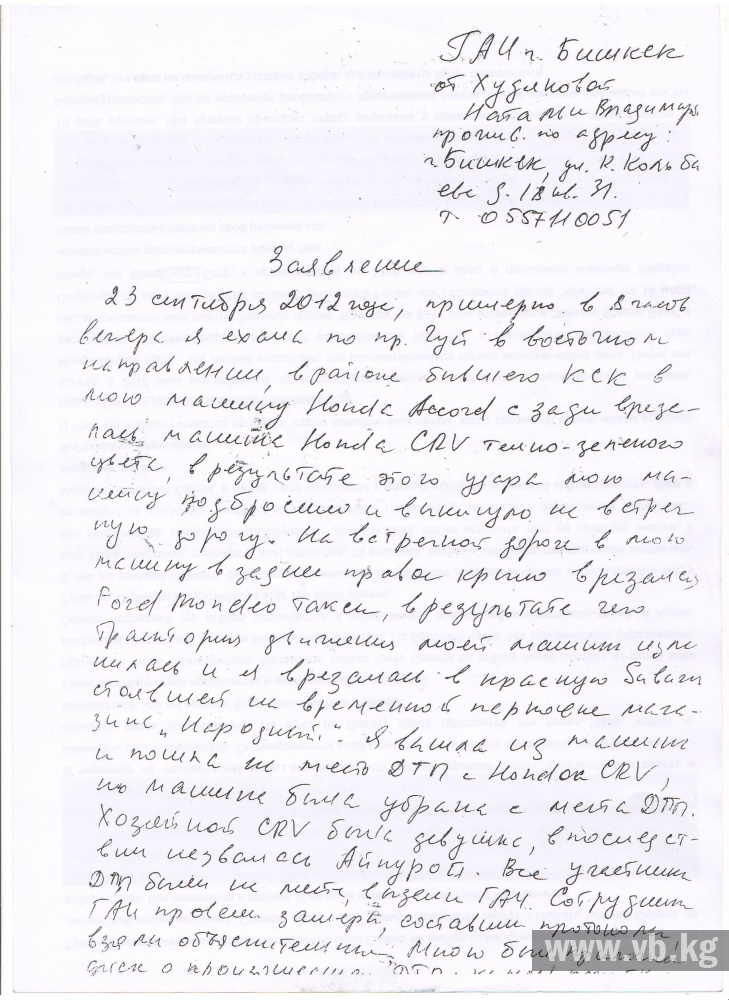 ГАИ г. Бишкек
от Худяковой
Натальи Владимир
прожив. по адресу:
г. Бишкек, ул. К. Кольба
ева д. 18 кв. 31.
т 0557110051
Заявление
23 сентября 2012 года, примерно в 8 часов
вечера я ехала по пр. Чуй в восточном
направлении, в районе бывшего КСК в
мою машину Honda Accord сзади вреза-
лась машина Honda CRV темно-зеленого
цвета, в результате этого удара мою ма-
шину подбросило и выкинуло на встреч
ную дорогу. На встречной дороге в мою
машину в заднее правое крыло врезался
Ford Mondeo такси, в результате чего
траектория движения моей машины изме
нилась и я врезалась в красную Subaru
стоявшей на временной парковке мага-
зина "Народный". Я вышла из машины
и пошла на место ДТП с Hondой CRV,
но машина была убрана с места ДТП.
Хозяйкой CRV была девушка, в последст
вии назвалась Айнурой. Все участники
ДТП были на месте, вызвали ГАИ. Сотрудники
ГАИ провели замеры, составили протоколы
взяли объяснительные. Мною был
диск о произошедшем ДТП.
www.vb.kg